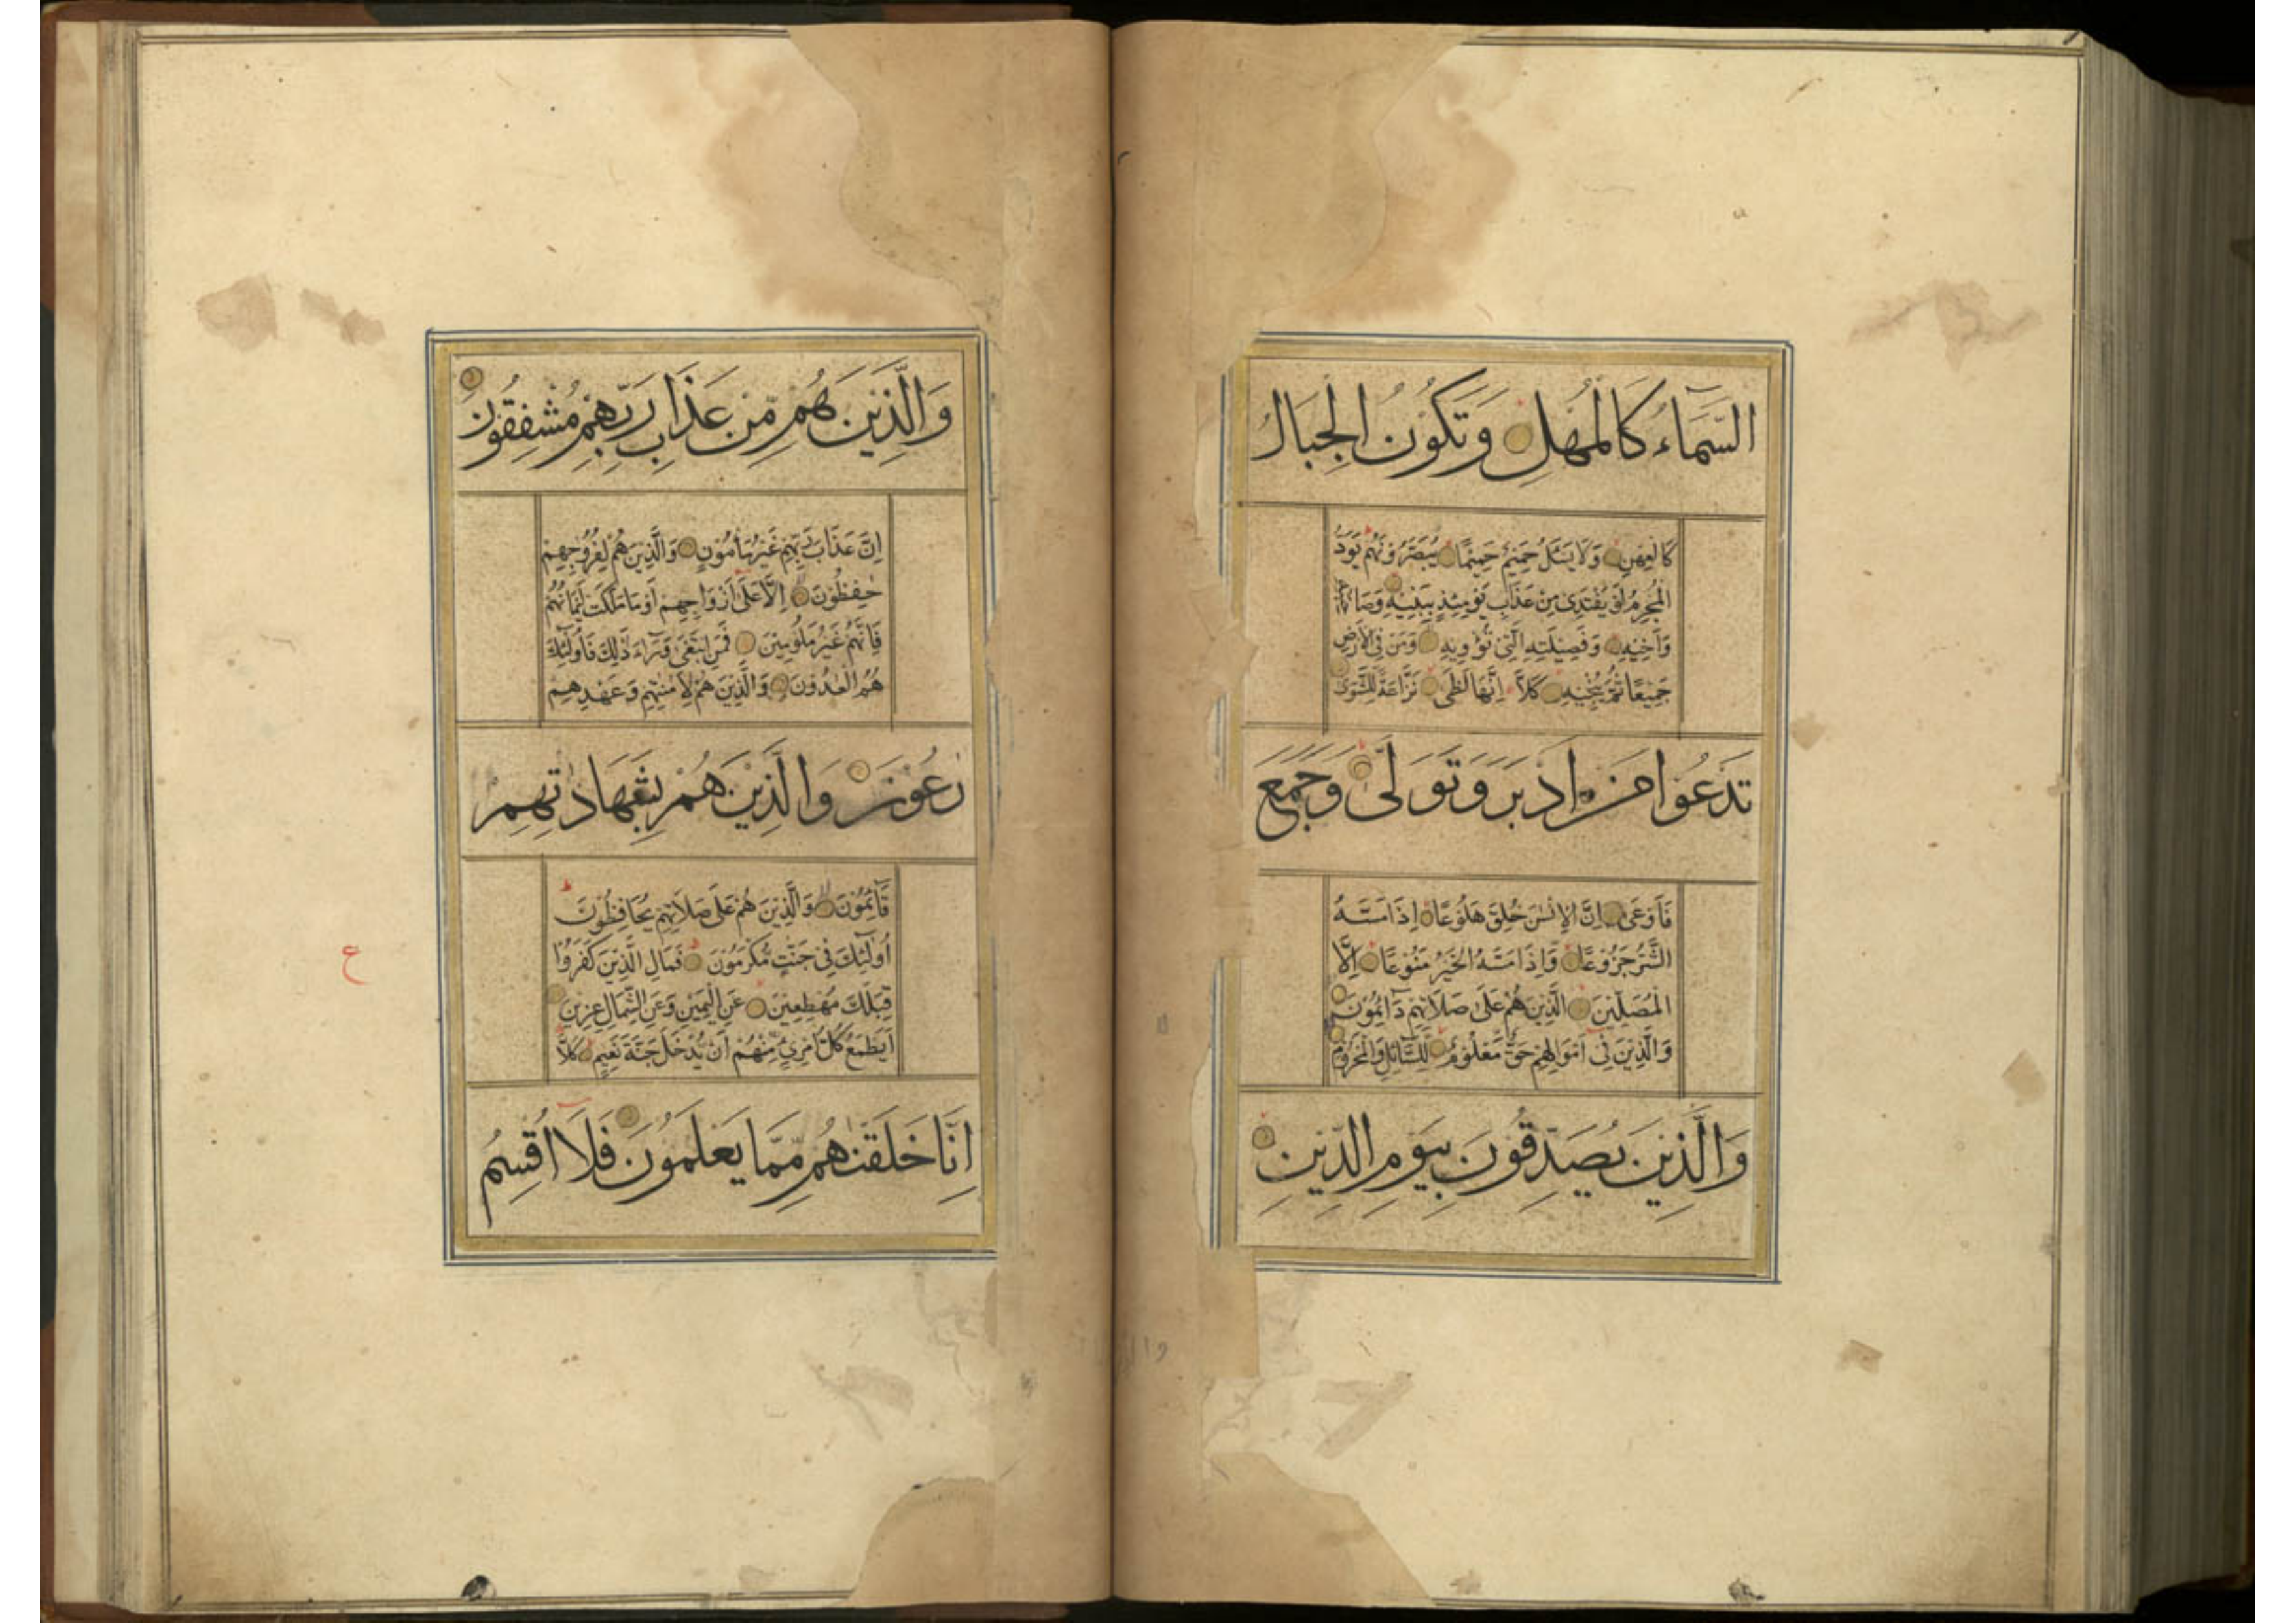 السَّمَآءُ كَالْمُهْلِ وَتَكُوْنُ الْجِبَالُ
كَالْعِهْنِ وَلَا يَسْئَلُ حَمِيْمٌ حَمِيْمًا يُبَصَّرُوْنَهُمْ يَوَدُّ
الْمُجْرِمُ لَوْ يَفْتَدِى مِنْ عَذَابِ يَوْمِئِذٍ بِبَنِيْهِ وَصَاحِبَتِهِ
وَاَخِيْهِ وَفَصِيْلَتِهِ الَّتِىْ تُؤْوِيْهِ وَمَنْ فِى الْاَرْضِ
جَمِيْعًا ثُمَّ يُنْجِيْهِ كَلَّا اِنَّهَا لَظٰى نَزَّاعَةً لِلشَّوٰى
تَدْعُوْا مَنْ اَدْبَرَ وَتَوَلّٰى وَجَمَعَ
فَاَوْعٰى اِنَّ الْاِنْسٰنَ خُلِقَ هَلُوْعًا اِذَا مَسَّهُ
الشَّرُّ جَزُوْعًا وَاِذَا مَسَّهُ الْخَيْرُ مَنُوْعًا اِلَّا
الْمُصَلِّيْنَ الَّذِيْنَ هُمْ عَلٰى صَلَاتِهِمْ دَآئِمُوْنَ
وَالَّذِيْنَ فِىْ اَمْوَالِهِمْ حَقٌّ مَّعْلُوْمٌ لِلسَّآئِلِ وَالْمَحْرُوْمِ
وَالَّذِيْنَ يُصَدِّقُوْنَ بِيَوْمِ الدِّيْنِ
وَالَّذِيْنَ هُمْ مِّنْ عَذَابِ رَبِّهِمْ مُشْفِقُوْنَ
اِنَّ عَذَابَ رَبِّهِمْ غَيْرُ مَأْمُوْنٍ وَالَّذِيْنَ هُمْ لِفُرُوْجِهِمْ
حٰفِظُوْنَ اِلَّا عَلٰى اَزْوَاجِهِمْ اَوْ مَا مَلَكَتْ اَيْمَانُهُمْ
فَاِنَّهُمْ غَيْرُ مَلُوْمِيْنَ فَمَنِ ابْتَغٰى وَرَآءَ ذٰلِكَ فَاُولٰئِكَ
هُمُ الْعٰدُوْنَ وَالَّذِيْنَ هُمْ لِاَمٰنٰتِهِمْ وَعَهْدِهِمْ
رٰعُوْنَ وَالَّذِيْنَ هُمْ بِشَهَادٰتِهِمْ
قَآئِمُوْنَ وَالَّذِيْنَ هُمْ عَلٰى صَلَاتِهِمْ يُحَافِظُوْنَ
اُولٰئِكَ فِىْ جَنّٰتٍ مُّكْرَمُوْنَ فَمَالِ الَّذِيْنَ كَفَرُوْا
قِبَلَكَ مُهْطِعِيْنَ عَنِ الْيَمِيْنِ وَعَنِ الشِّمَالِ عِزِيْنَ
اَيَطْمَعُ كُلُّ امْرِئٍ مِّنْهُمْ اَنْ يُّدْخَلَ جَنَّةَ نَعِيْمٍ كَلَّا
ع
اِنَّا خَلَقْنٰهُمْ مِّمَّا يَعْلَمُوْنَ فَلَا اُقْسِمُ